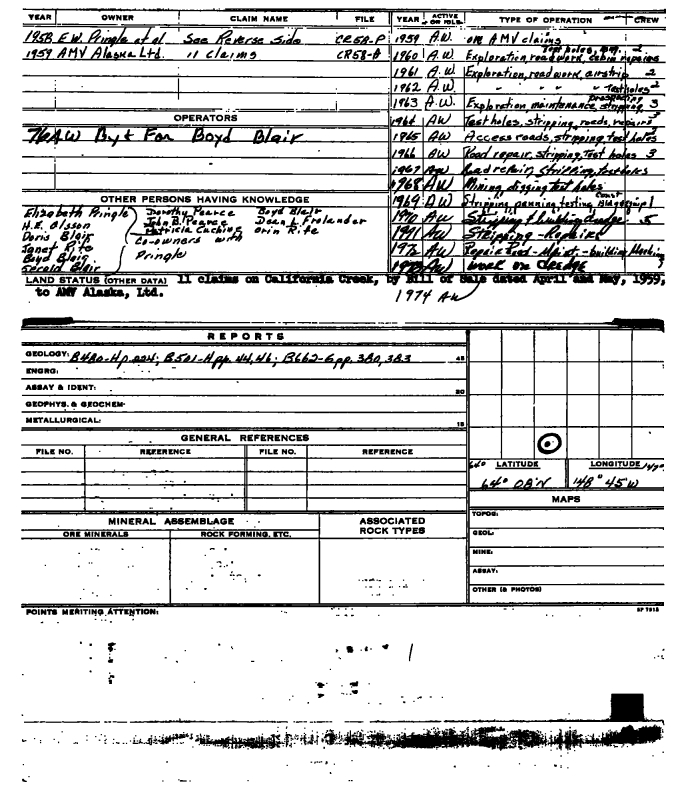 YEAR OWNER CLAIM NAME FILE
1958 E.W. Pringle et al See Reverse Side CR58-P
1959 AMV Alaska Ltd. 11 claims CR58-A
OPERATORS
76 AW By & For Boyd Blair
OTHER PERSONS HAVING KNOWLEDGE
Elizabeth Pringle
H.E. Olsson
Doris Blair
Janet Rife
Boyd Blair
Gerald Blair
Dorothy Pearce
John B. Pearce
Patricia
Co-owners with
Pringle
Boyd Blair
Dean L.
Orin Rife
YEAR ACTIVE OR IDLE TYPE OF OPERATION CREW
1959 A.W. on AMV claims
1960 A.W. Exploration, road work, cabin repairs Test holes, 2
1961 A.W. Exploration, road work, airstrip 2
1962 A.W. " " " Test holes 2
1963 A.W. Exploration, maintenance, prospecting stripping 3
1964 AW Test holes, stripping, roads, repairs
1965 AW Access roads, stripping, test holes
1966 AW Road repair, stripping, Test holes 3
1967 AW Road repair, stripping, testholes
1968 AW Mining, digging test holes
1969 AW Stripping, panning testing, Const
1970 AW Stripping & building dredge 5
1971 AW Stripping - Repairs
1972 AW Repair Road - - building
1973 AW Work on dredge
LAND STATUS (OTHER DATA) 11 claims on California Creek, by Bill of Sale dated April and May, 1959,
to AMV Alaska, Ltd.
1974 AW
REPORTS
GEOLOGY: B480-H p. 224; B501-H pp. 44, 46; B662-G pp. 380, 383 45
ENGRG:
ASSAY & IDENT: 20
GEOPHYS. & GEOCHEM-
METALLURGICAL: 15
GENERAL REFERENCES
FILE NO. REFERENCE FILE NO. REFERENCE
64° LATITUDE LONGITUDE
64° 08'N 148° 45 W
MAPS
MINERAL ASSEMBLAGE ASSOCIATED ROCK TYPES
ORE MINERALS ROCK FORMING, ETC.
TOPOS:
GEOL:
MINE:
ASSAY:
OTHER (& PHOTOS)
POINTS MERITING ATTENTION: